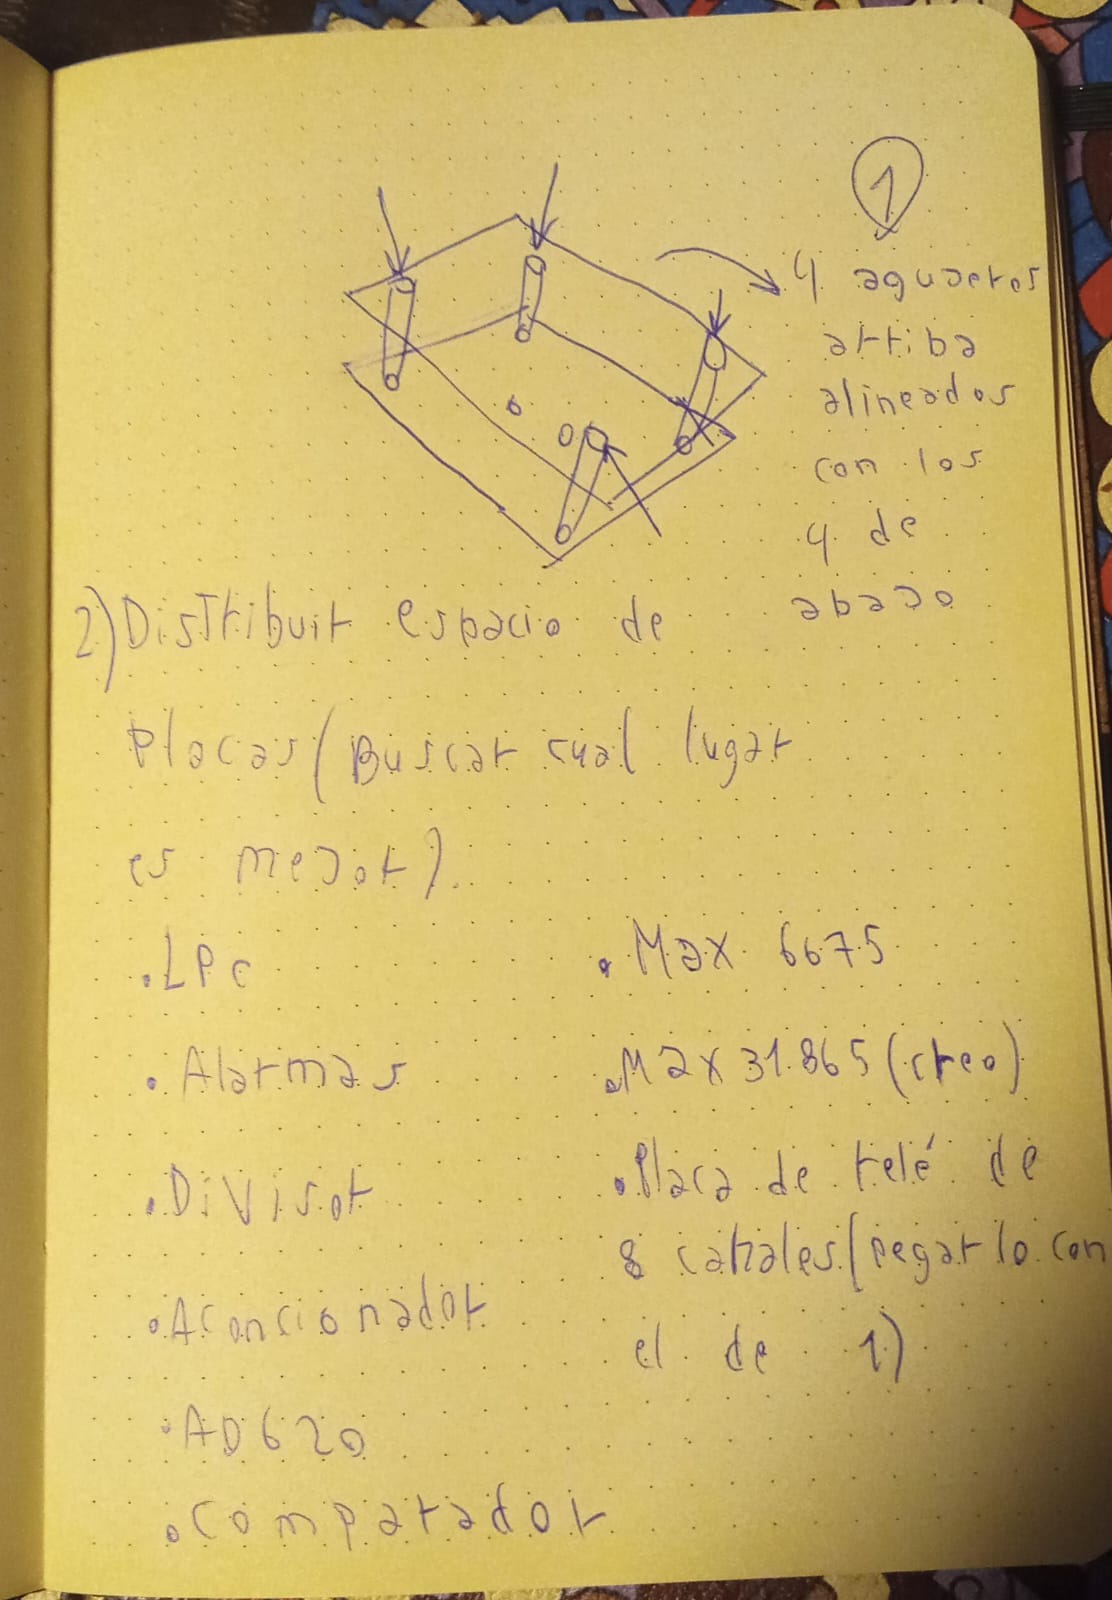 1
4 aguaeros
arriba
alineados
con los
4 de
abajo
2) Distribuir espacio de
Placas (Buscar cual lugar
es mejor).
• LPC
• Alarmas
• Divisor
• Aconcionador
• AD620
• Comparador
• Max 6675
• Max 31865 (creo)
• Placa de relé de
8 canales (pegarlo con
el de 1)